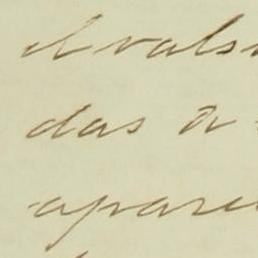 el vals
das a
apare